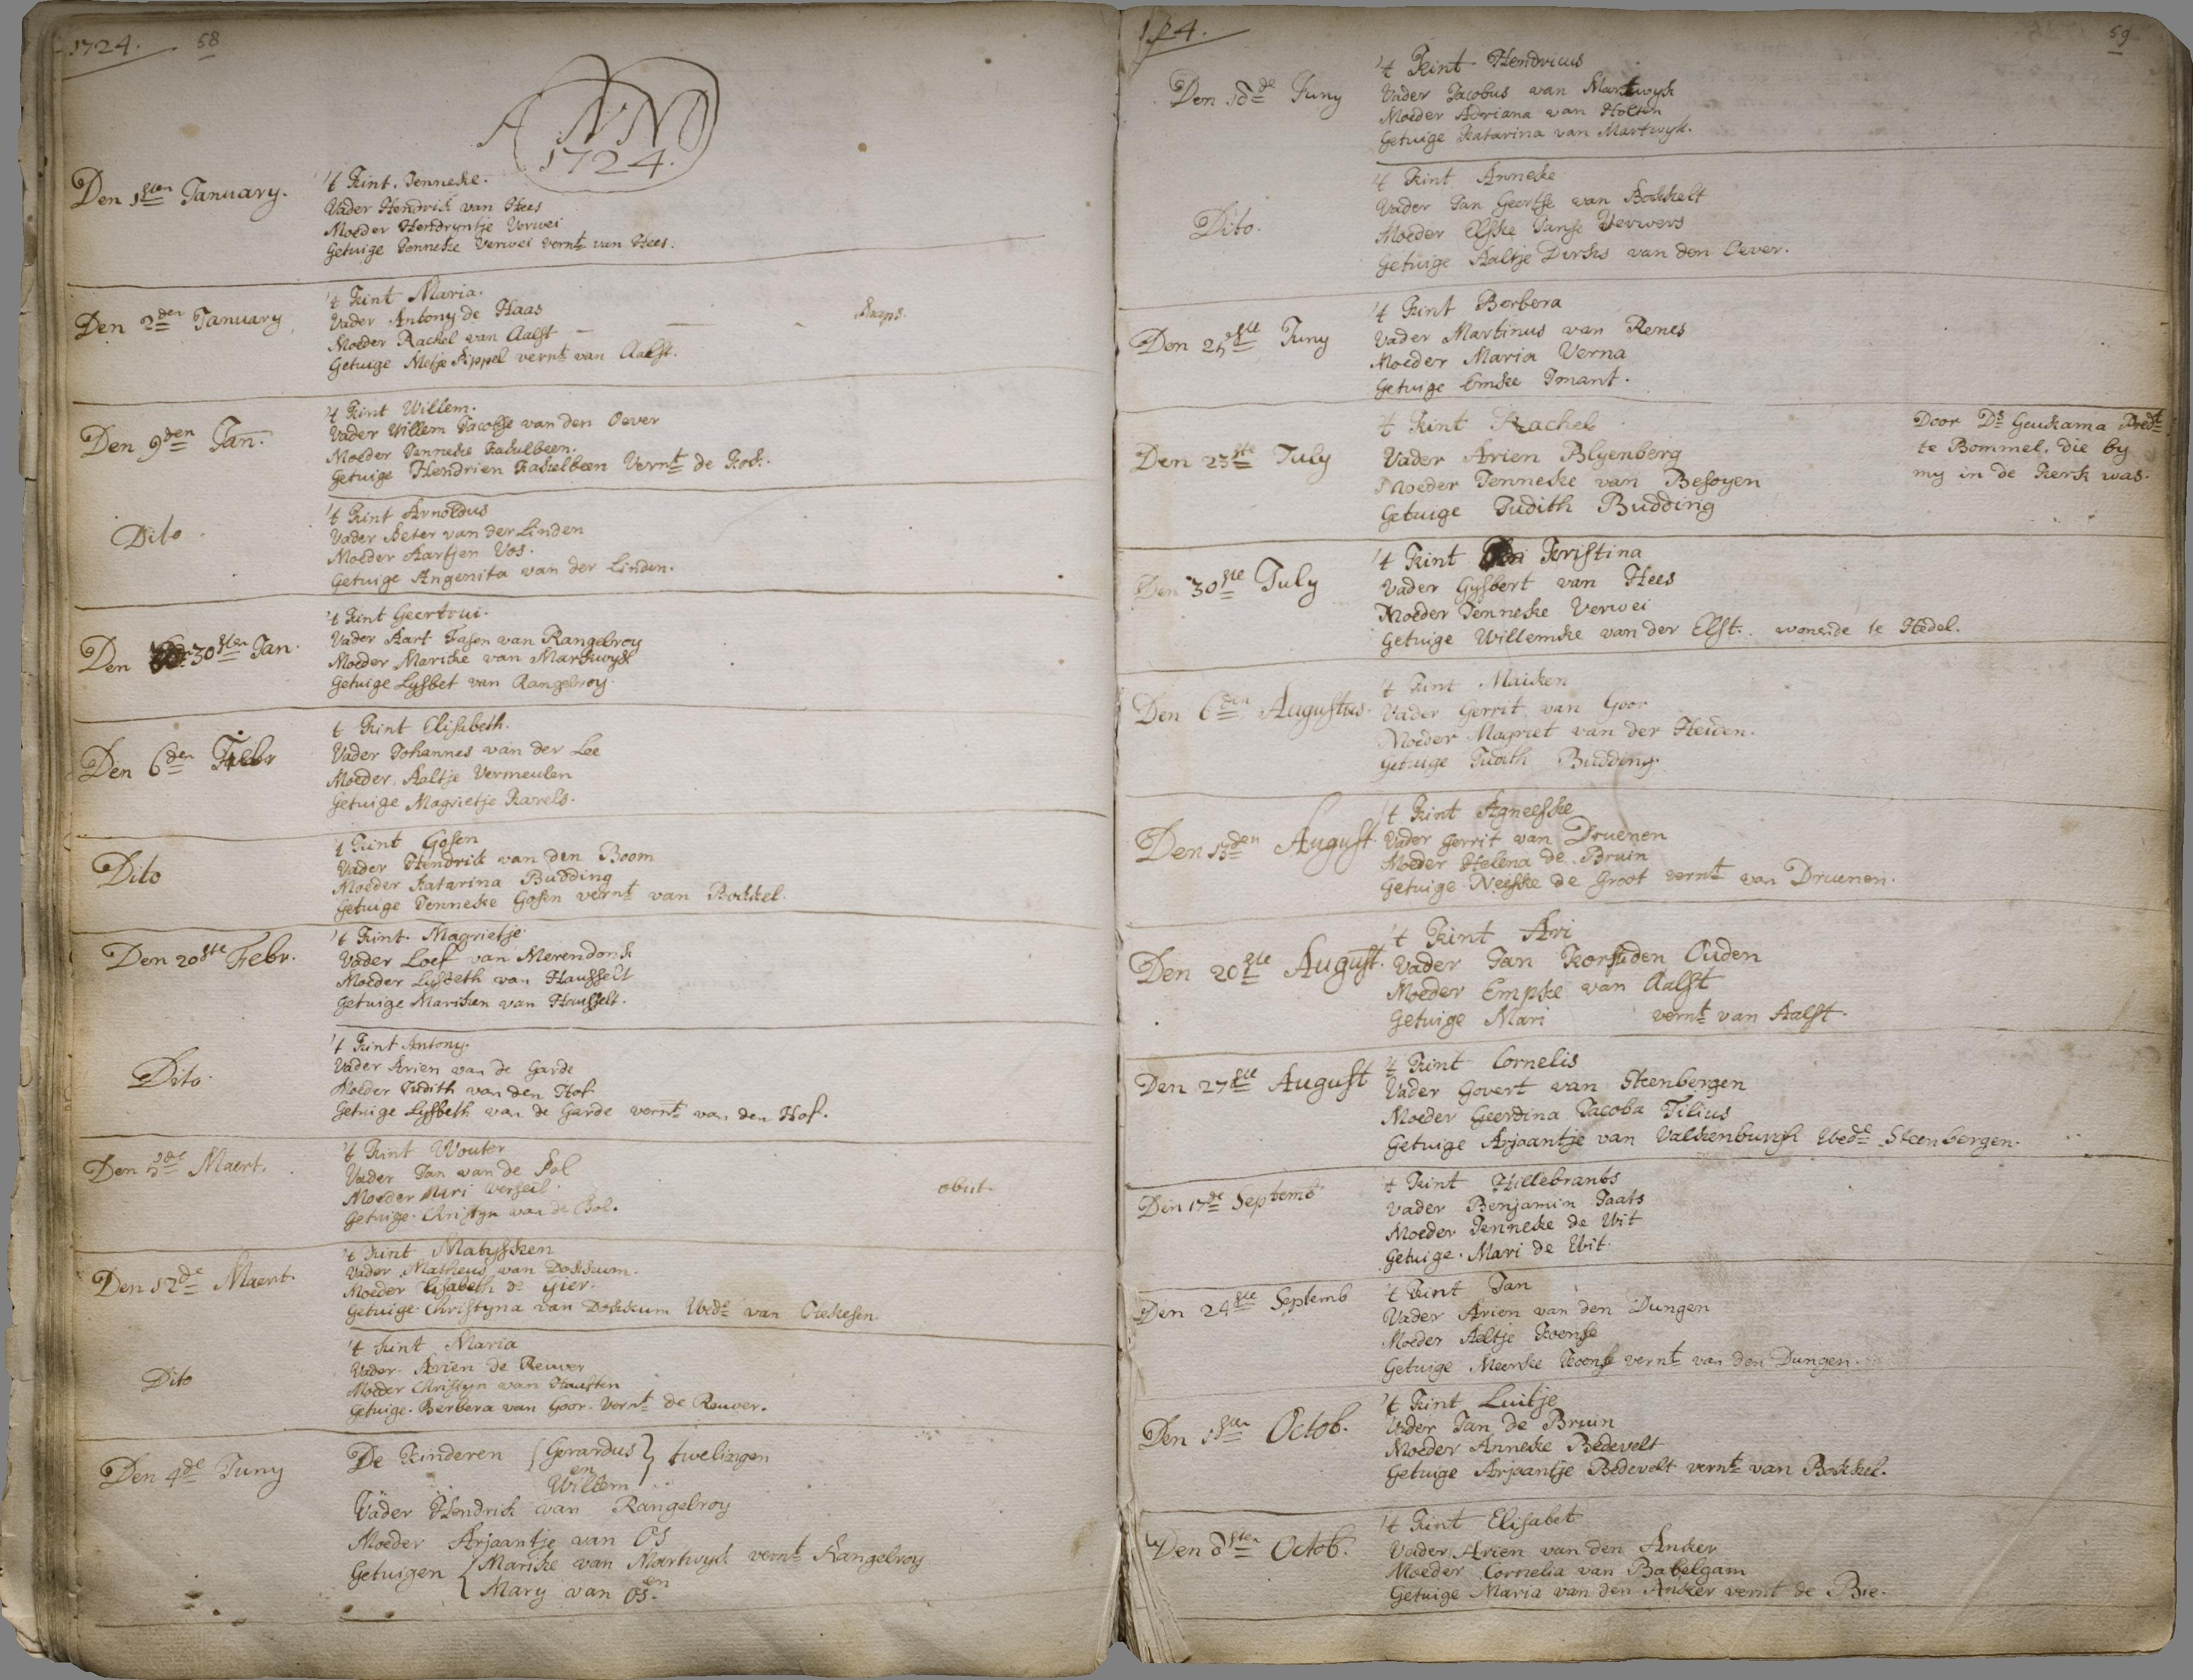 1724. 58
ANNO
1724.
Den 1sten January.
't Kint. Jenneke.
Vader Hendrik van Hees
Moeder Hendryntje Verwei
Getuige Jenneke Verwei vernt van Hees.
Den 2den January
't Kint Maria.
Vader Antony de Haas
Moeder Rachel van Aalst
Getuige Metje Kippel vernt van Aalst.
Den 9den Jan.
't Kint Willem.
Vader Willem Jacobse van den Oever
Moeder Jenneke Kakelbeen.
Getuige Hendrien Kakelbeen Vernt de Kok.
Dito
't Kint Arnoldus
Vader Peter van der Linden
Moeder Aartjen Vos.
Getuige Angenita van der Linden.
Den 30sten Jan.
't Kint Geertrui.
Vader Aart Jasen van Rangelroy
Moeder Marike van Martwyk
Getuige Lysbet van Rangelroy.
Den 6den Febr
't Kint Elisabeth.
Vader Johannes van der Lee
Moeder Aeltje Vermeulen
Getuige Magrietje Karels.
Dito
't Kint Gosen
Vader Hendrik van den Boom
Moeder Katarina Budding
Getuige Jenneke Gosen vernt van Bokkel.
Den 20ste Febr.
't Kint. Magrietje
Vader Loef van Merendonk
Moeder Lysbeth van Hausselt
Getuige Mariken van Hausselt.
Dito.
't Kint Antony.
Vader Arien van de Garde
Moeder Judith van den Hof
Getuige Lysbeth van de Garde vernt van den Hof.
Den 5de Maert.
't Kint Wouter
Vader Jan van de Pol
Moeder Meri Verseil.
Getuige. Christyn van de Bol.
obiit.
Den 12de Maert.
't Kint Matysken
Vader Matheus van Dokkum.
Moeder Elisabeth de Gier.
Getuige. Christyna van Dokkum Wede van
Dito
't Kint Maria
Vader. Arien de Reuver
Moeder Christyn van Hausten
Getuige. Berbera van Goor. Vernt de Reuver.
Den 4de Juny
De Kinderen Gerardus en Willem twelizigen
Vader Hendrik van Rangelroy
Moeder Arjaantje van Os
Getuigen Marike van Martwyck vernt Rangelroy en
Mary van Os.
1724. 59
Den 18de Juny
't Kint Hendricus
Vader Jacobus van Martwyk
Moeder Adriana van Holten
Getuige Katarina van Martwyk.
Dito.
't Kint Anneke
Vader Jan Geertse van Bokkelt
Moeder Elske Janse Verwers
Getuige Aaltje Dirks van den Oever.
Den 25ste Juny
't Kint Berbera
Vader Martinus van Renes
Moeder Maria Verna
Getuige Emke Imant.
Den 23ste July
't Kint Rachel
Vader Arien Blyenberg
Moeder Jenneke van Besoyen
Getuige Judith Budding
Door Ds Geukama Predt
te Bommel, die by
my in de Kerk was.
Den 30ste July
't Kint Kristina
Vader Gysbert van Hees
Moeder Jenneke Verwei
Getuige Willemke van der Elst. wonende te Hedel.
Den 6den Augustus.
't Kint Maiken
Vader Gerrit van Goor
Moeder Magriet van der Heiden.
Getuige Judith Budding.
Den 13den August.
't Kint Agneeske
Vader Gerrit van Druenen
Moeder Helena de Bruin
Getuige Neeske de Groot vernt van Druenen.
Den 20ste August.
't Kint Ari
Vader Jan Korsuden Ouden
Moeder Empke van Aalst
Getuige Mari vernt van Aalst.
Den 27ste August
't Kint Cornelis
Vader Govert van Steenbergen
Moeder Geerdina Jacoba Tilius
Getuige Arjaantje van Valkenburgh Wede Steenbergen.
Den 17de Septemb
't Kint Hillebrants
Vader Benjamin Taats
Moeder Jenneke de Wit
Getuige. Mari de Wit.
Den 24ste Septemb
't Kint Jan
Vader Arien van den Dungen
Moeder Aeltje Koense
Getuige Meerike Koense vernt van den Dungen.
Den 1sten Octob.
't Kint Luitje
Vader Jan de Bruin
Moeder Anneke Bedevelt
Getuige Arjaantje Bedevelt vernt van Bokkel.
Den 8sten Octob.
't Kint Elisabet
Vader Arien van den Anker
Moeder Cornelia van Babelgam
Getuige Maria van den Anker vernt de Bie.